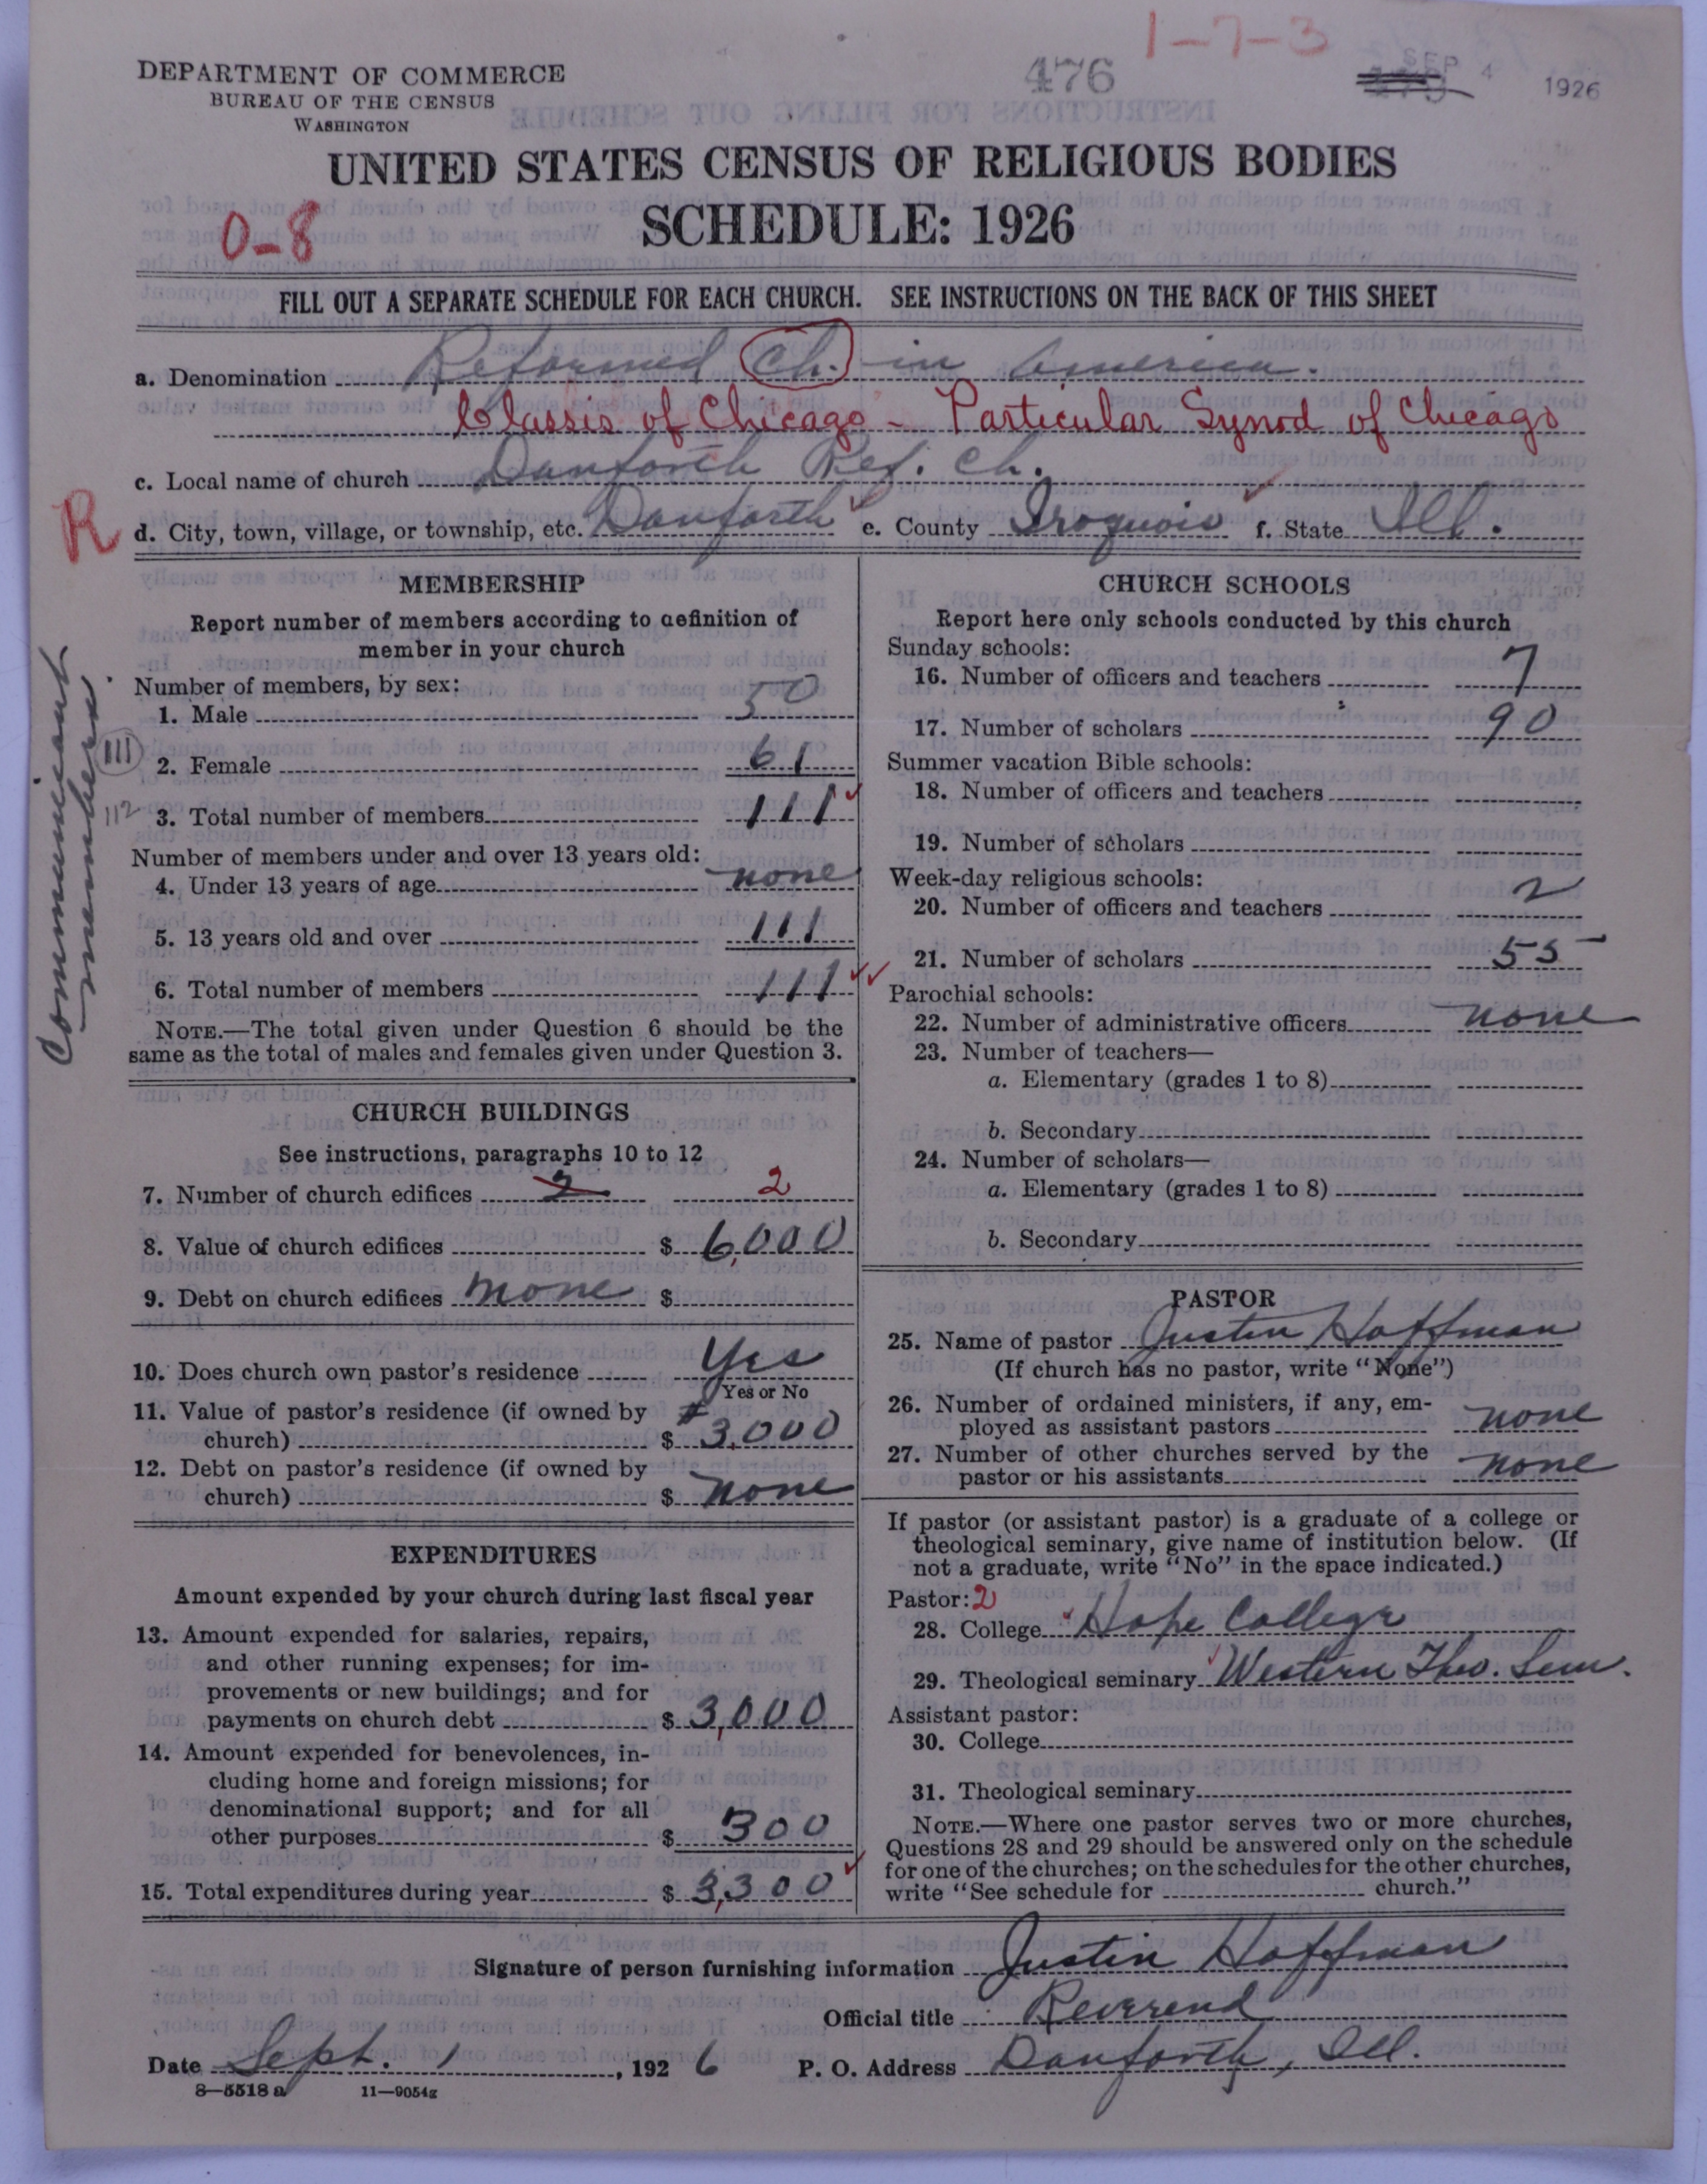 1-7-3
DEPARTMENT OF COMMERCE
BUREAU OF THE CENSUS
WASHINGTON
476
SEP 4 1926
UNITED STATES CENSUS OF RELIGIOUS BODIES
SCHEDULE: 1926
0-8
FILL OUT A SEPARATE SCHEDULE FOR EACH CHURCH. SEE INSTRUCTIONS ON THE BACK OF THIS SHEET
a. Denomination Reformed Ch. in America.
Classis of Chicago - Particular Synod of Chicago
c. Local name of church Danforth Ref. Ch.
R
d. City, town, village, or township, etc. Danforth e. County Iroquois f. State Ill.
MEMBERSHIP
Report number of members according to definition of
member in your church
Number of members, by sex:
1. Male 50
2. Female 61
3. Total number of members 111
Number of members under and over 13 years old:
4. Under 13 years of age none
5. 13 years old and over 111
6. Total number of members 111
NOTE.—The total given under Question 6 should be the
same as the total of males and females given under Question 3.
Communicant
members.
111
112
CHURCH BUILDINGS
See instructions, paragraphs 10 to 12
7. Number of church edifices 2 2
8. Value of church edifices $ 6,000
9. Debt on church edifices none $
10. Does church own pastor's residence Yes
Yes or No
11. Value of pastor's residence (if owned by
church) $ 3,000
12. Debt on pastor's residence (if owned by
church) $ none
EXPENDITURES
Amount expended by your church during last fiscal year
13. Amount expended for salaries, repairs,
and other running expenses; for im-
provements or new buildings; and for
payments on church debt $ 3,000
14. Amount expended for benevolences, in-
cluding home and foreign missions; for
denominational support; and for all
other purposes $ 300
15. Total expenditures during year $ 3,300
CHURCH SCHOOLS
Report here only schools conducted by this church
Sunday schools:
16. Number of officers and teachers 7
17. Number of scholars 90
Summer vacation Bible schools:
18. Number of officers and teachers
19. Number of scholars
Week-day religious schools:
20. Number of officers and teachers 2
21. Number of scholars 55
Parochial schools:
22. Number of administrative officers none
23. Number of teachers—
a. Elementary (grades 1 to 8)
b. Secondary
24. Number of scholars—
a. Elementary (grades 1 to 8)
b. Secondary
PASTOR
25. Name of pastor Justin Hoffman
(If church has no pastor, write "None")
26. Number of ordained ministers, if any, em-
ployed as assistant pastors none
27. Number of other churches served by the
pastor or his assistants none
If pastor (or assistant pastor) is a graduate of a college or
theological seminary, give name of institution below. (If
not a graduate, write "No" in the space indicated.)
Pastor: 2
28. College Hope College
29. Theological seminary Western Theo. Sem.
Assistant pastor:
30. College
31. Theological seminary
NOTE.—Where one pastor serves two or more churches,
Questions 28 and 29 should be answered only on the schedule
for one of the churches; on the schedules for the other churches,
write "See schedule for church."
Signature of person furnishing information Justin Hoffman
Official title Reverend
Date Sept. 1, 1926 P. O. Address Danforth, Ill.
8—5518 a 11—9054z